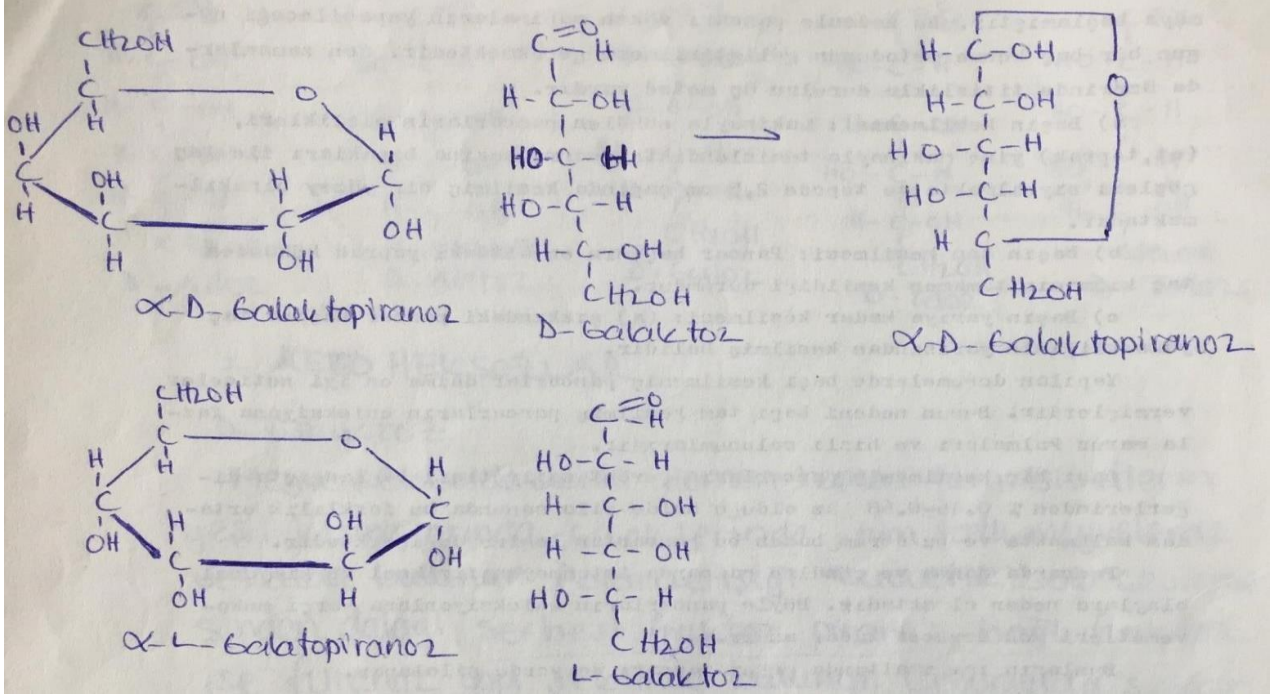 CH2OH
C O
H
OH H
C C
H OH H OH
C C
H OH
α-D-Galaktopiranoz
C=O
H
H-C-OH
HO-C-H
HO-C-H
H-C-OH
CH2OH
D-Galaktoz
H-C-OH
H-C-OH
O
HO-C-H
HO-C-H
H C
CH2OH
α-D-Galaktopiranoz
CH2OH
C O
H
H H
C C
OH H OH OH
C C
OH H
α-L-Galatopiranoz
C=O
H
HO-C-H
H-C-OH
H-C-OH
HO-C-H
CH2OH
L-Galaktoz